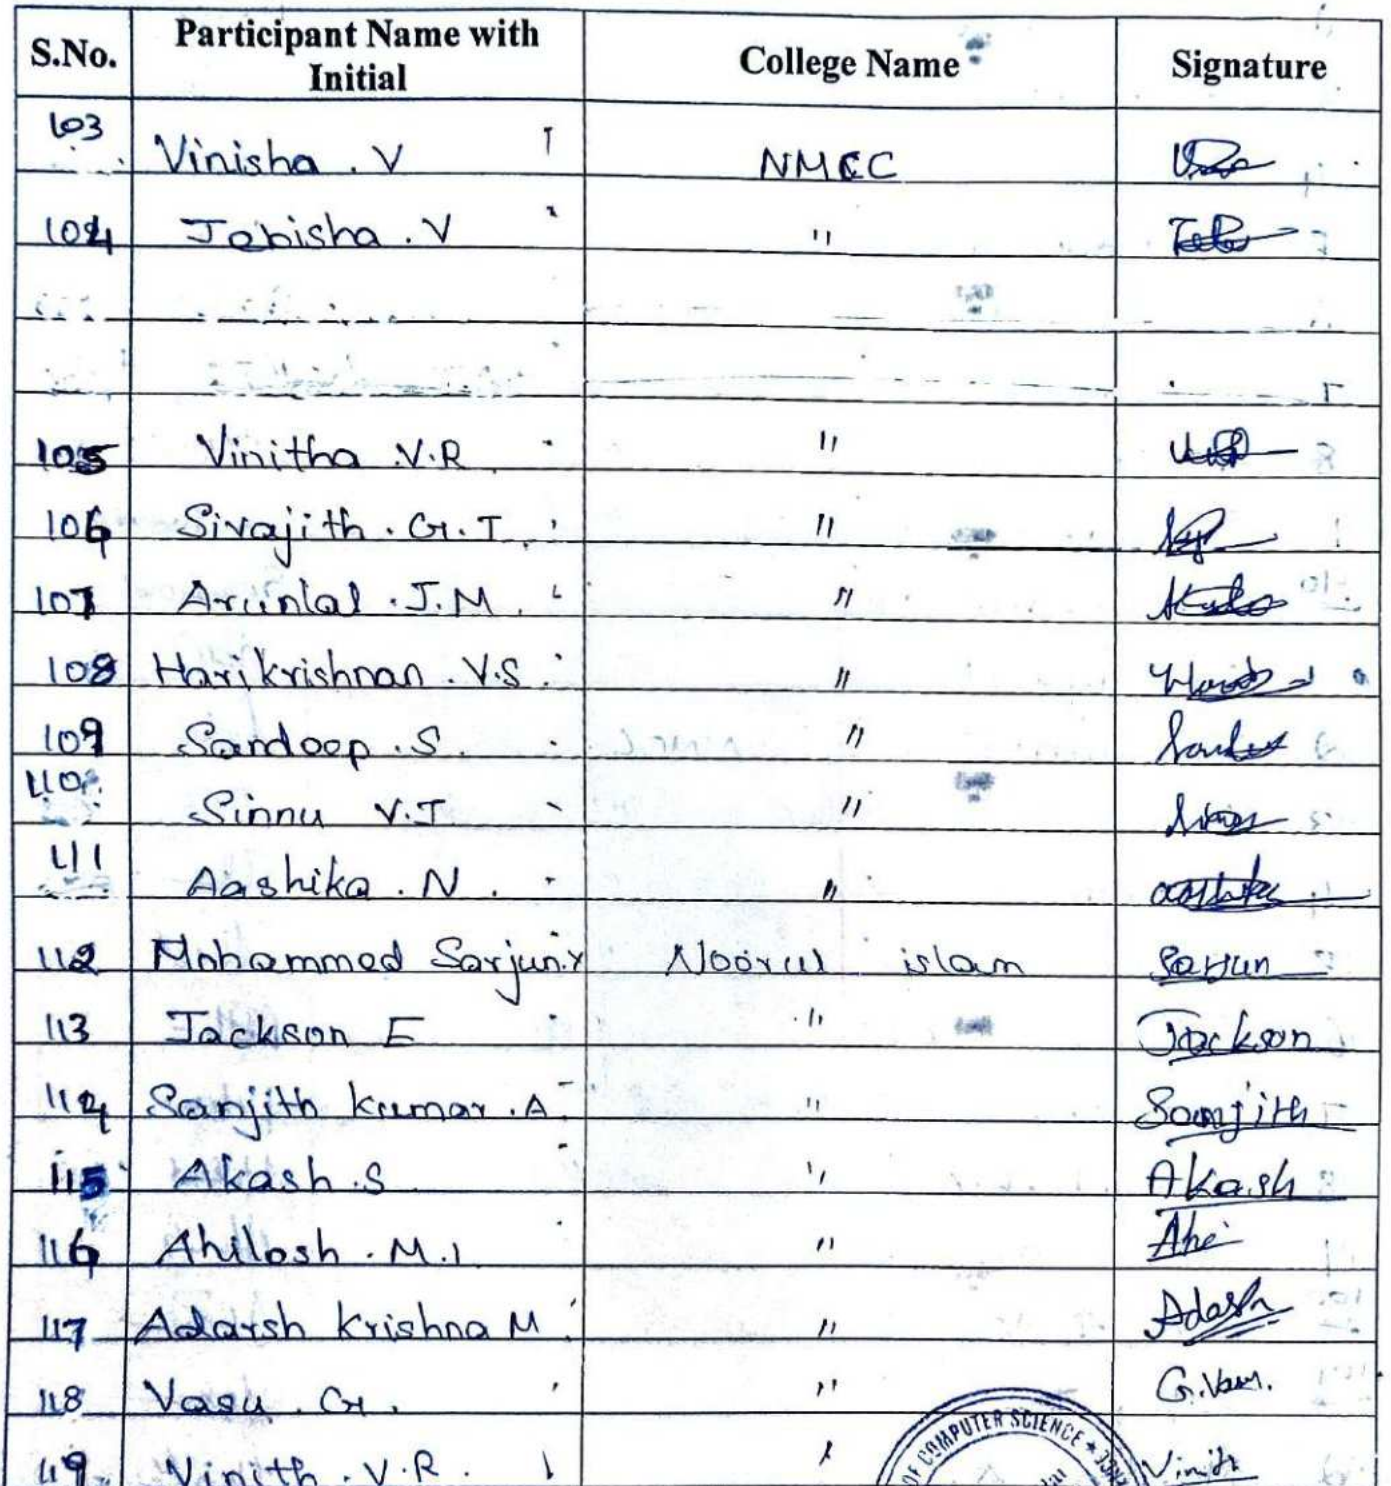 S.No. Participant Name with Initial College Name Signature
103 Vinisha . V NMCC
104 Jebisha . V "
105 Vinitha .V.R "
106 Sivajith . G. T. "
107 Arunlal .J.M. "
108 Harikrishnan . V.S. "
109 Sandeep .S. "
110 Sinnu V.J "
111 Aashika . N . " aashika
112 Mohammed Sarjun.Y Noorul islam Sarjun
113 Jackson E " Jackson
114 Sanjith kumar .A. " Sanjith
115 Akash .S " Akash
116 Ahilosh . M.I " Ahi
117 Adarsh Krishna M. " Adash
118 Vasu . G . " G.Vasu.
119 Vinith . V.R. " Vinith
OF COMPUTER SCIENCE ★